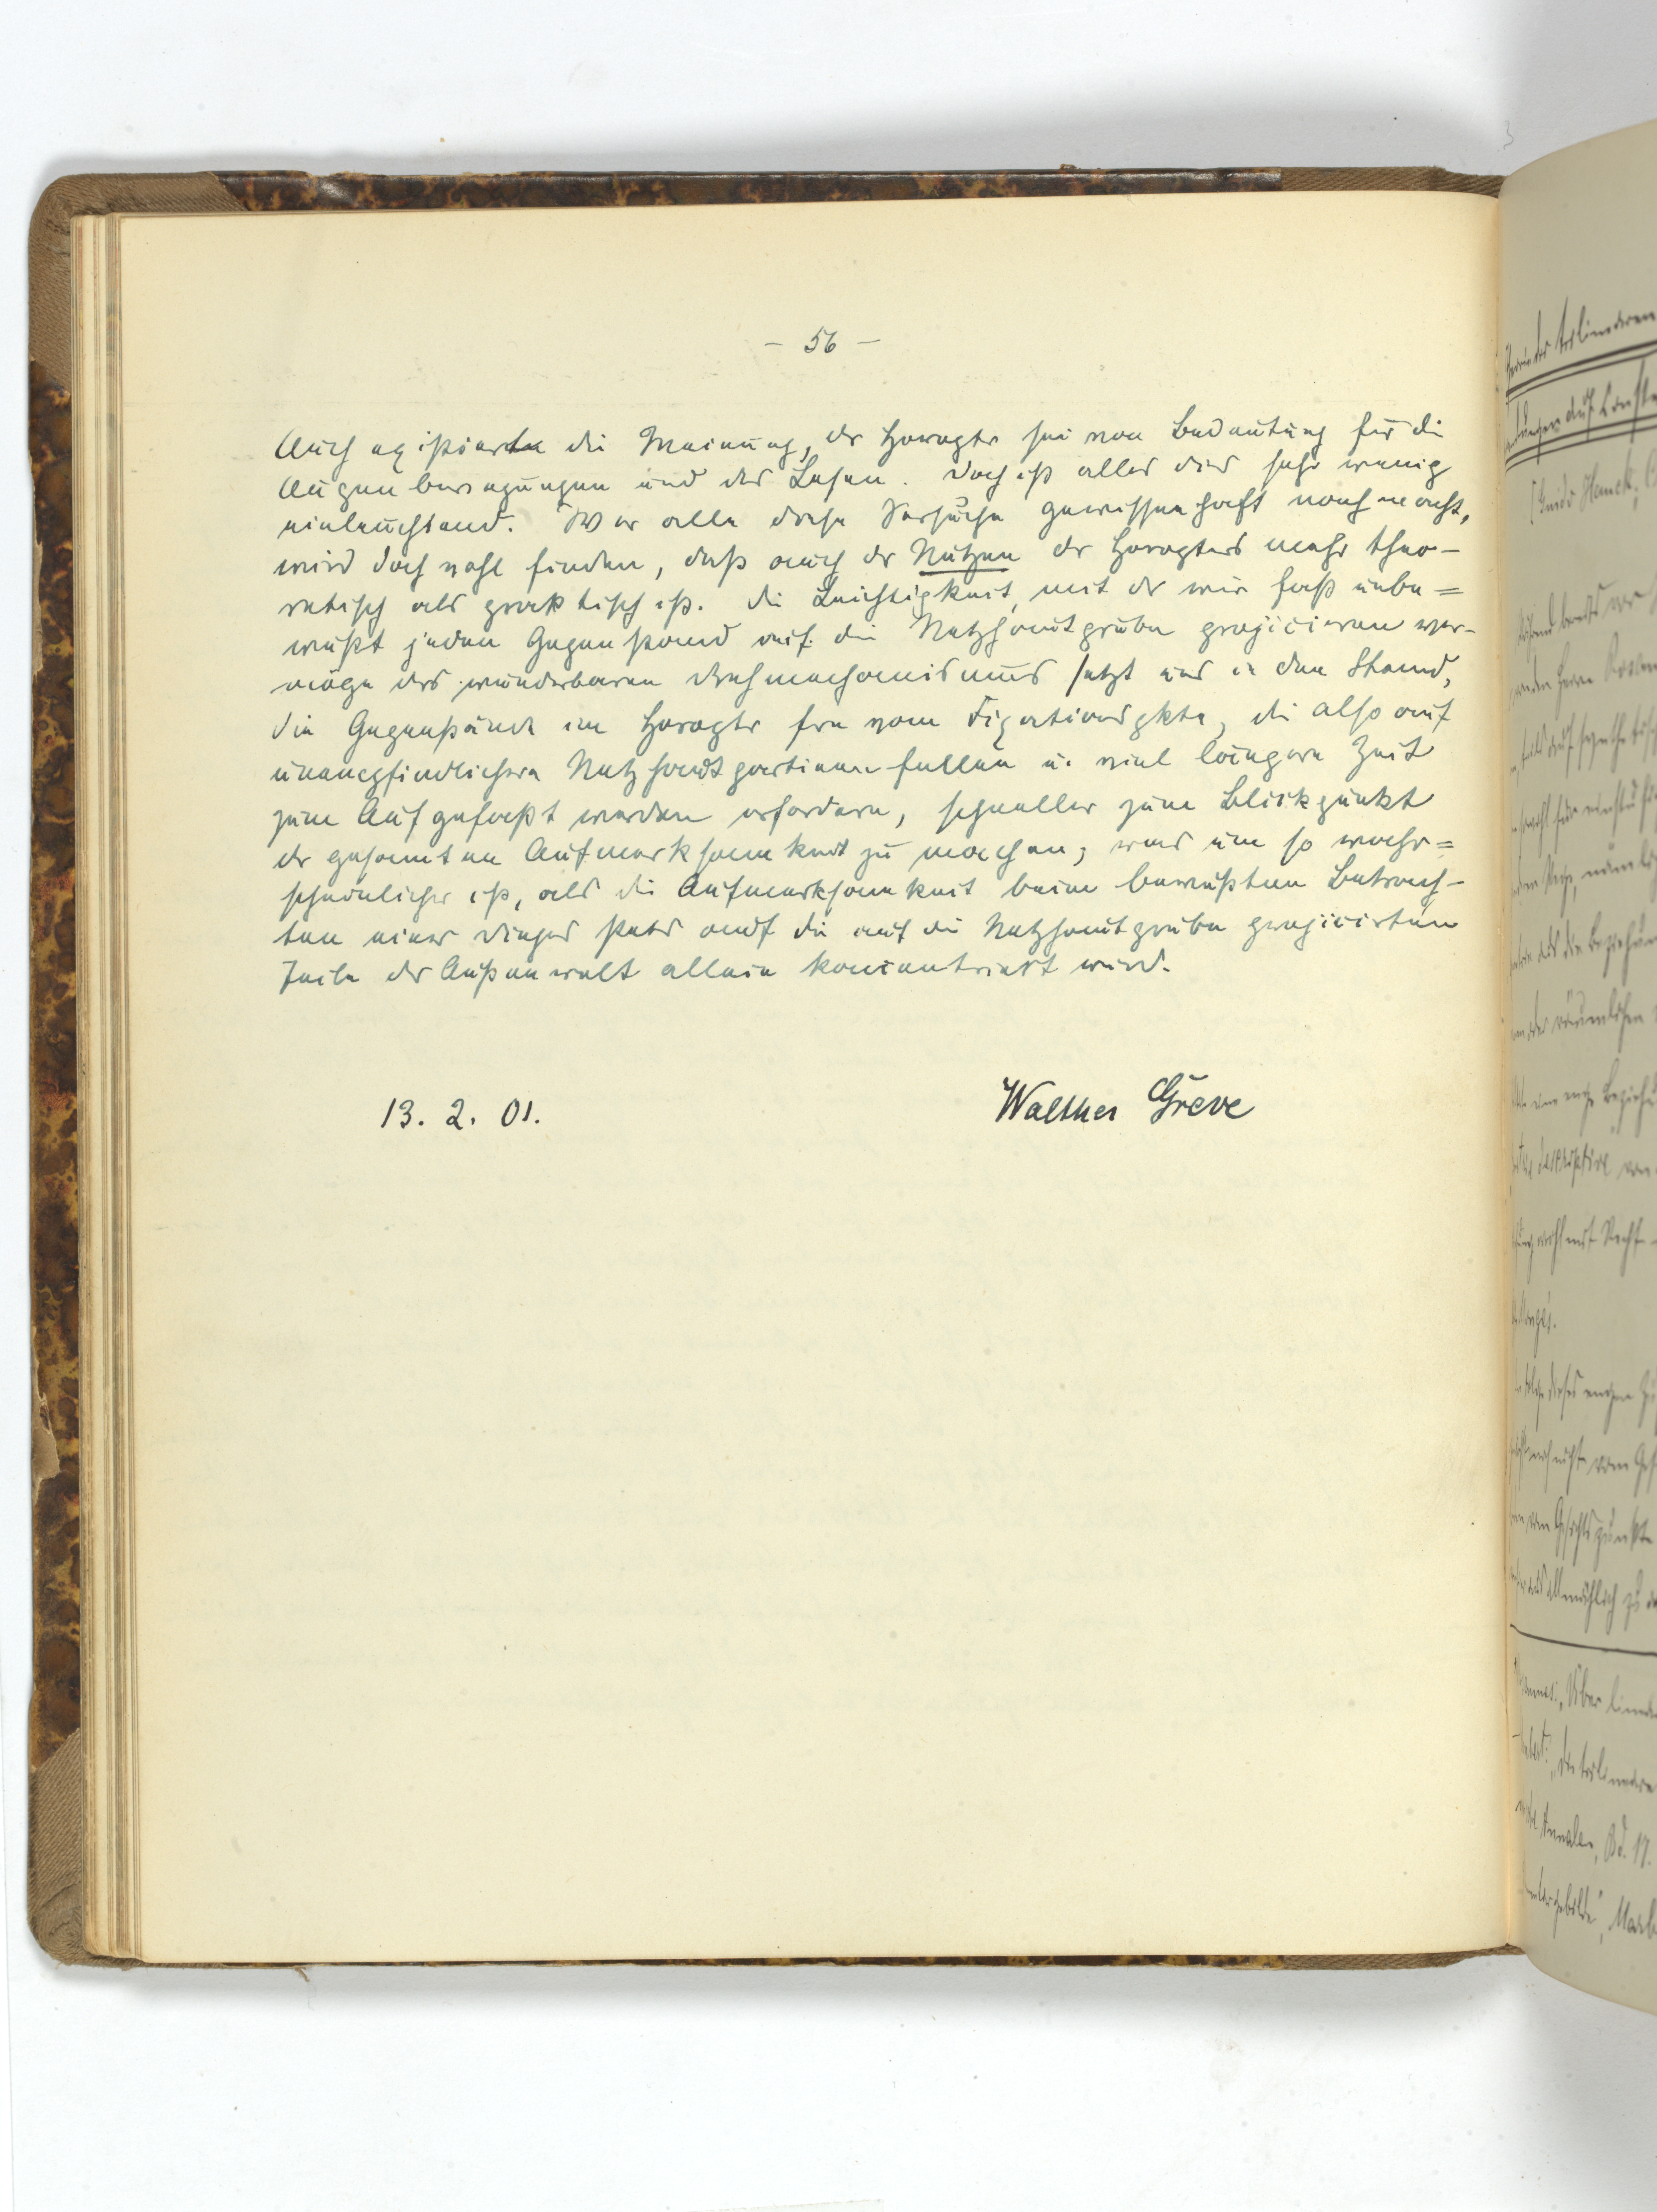 - 56 -
Auch existierte die Meinung, der Horopter sei von Bedeutung für die
Augenbewegungen und das Lesen. Doch ist alles dies sehr wenig
einleuchtend. Wer alle diese Versuche gewissenhaft nachmacht,
wird doch wohl finden, daß auch der Nutzen des Horopters mehr theo-
retisch als praktisch ist. Die Leichtigkeit, mit der wir fast unbe=
wußt jeden Gegenstand auf die Netzhautgrube projicieren ver-
möge des wunderbaren Drehmechanismus setzt uns in den Stand,
die Gegenstände im Horopter fern vom Fixationspkte, die also auf
unempfindlichere Netzhautpartieen fallen u. viel längere Zeit
zum Aufgefaßt werden erfordern, schneller zum Blickpunkt
der gesamten Aufmerksamkeit zu machen; was um so wahr=
scheinlicher ist, als die Aufmerksamkeit beim bewußten Betrach-
ten eines Dinges stets auf die auf die Netzhautgrube projicirten
Teile der Außenwelt allein koncentriert wird.
13. 2. 01.
Walther Greve